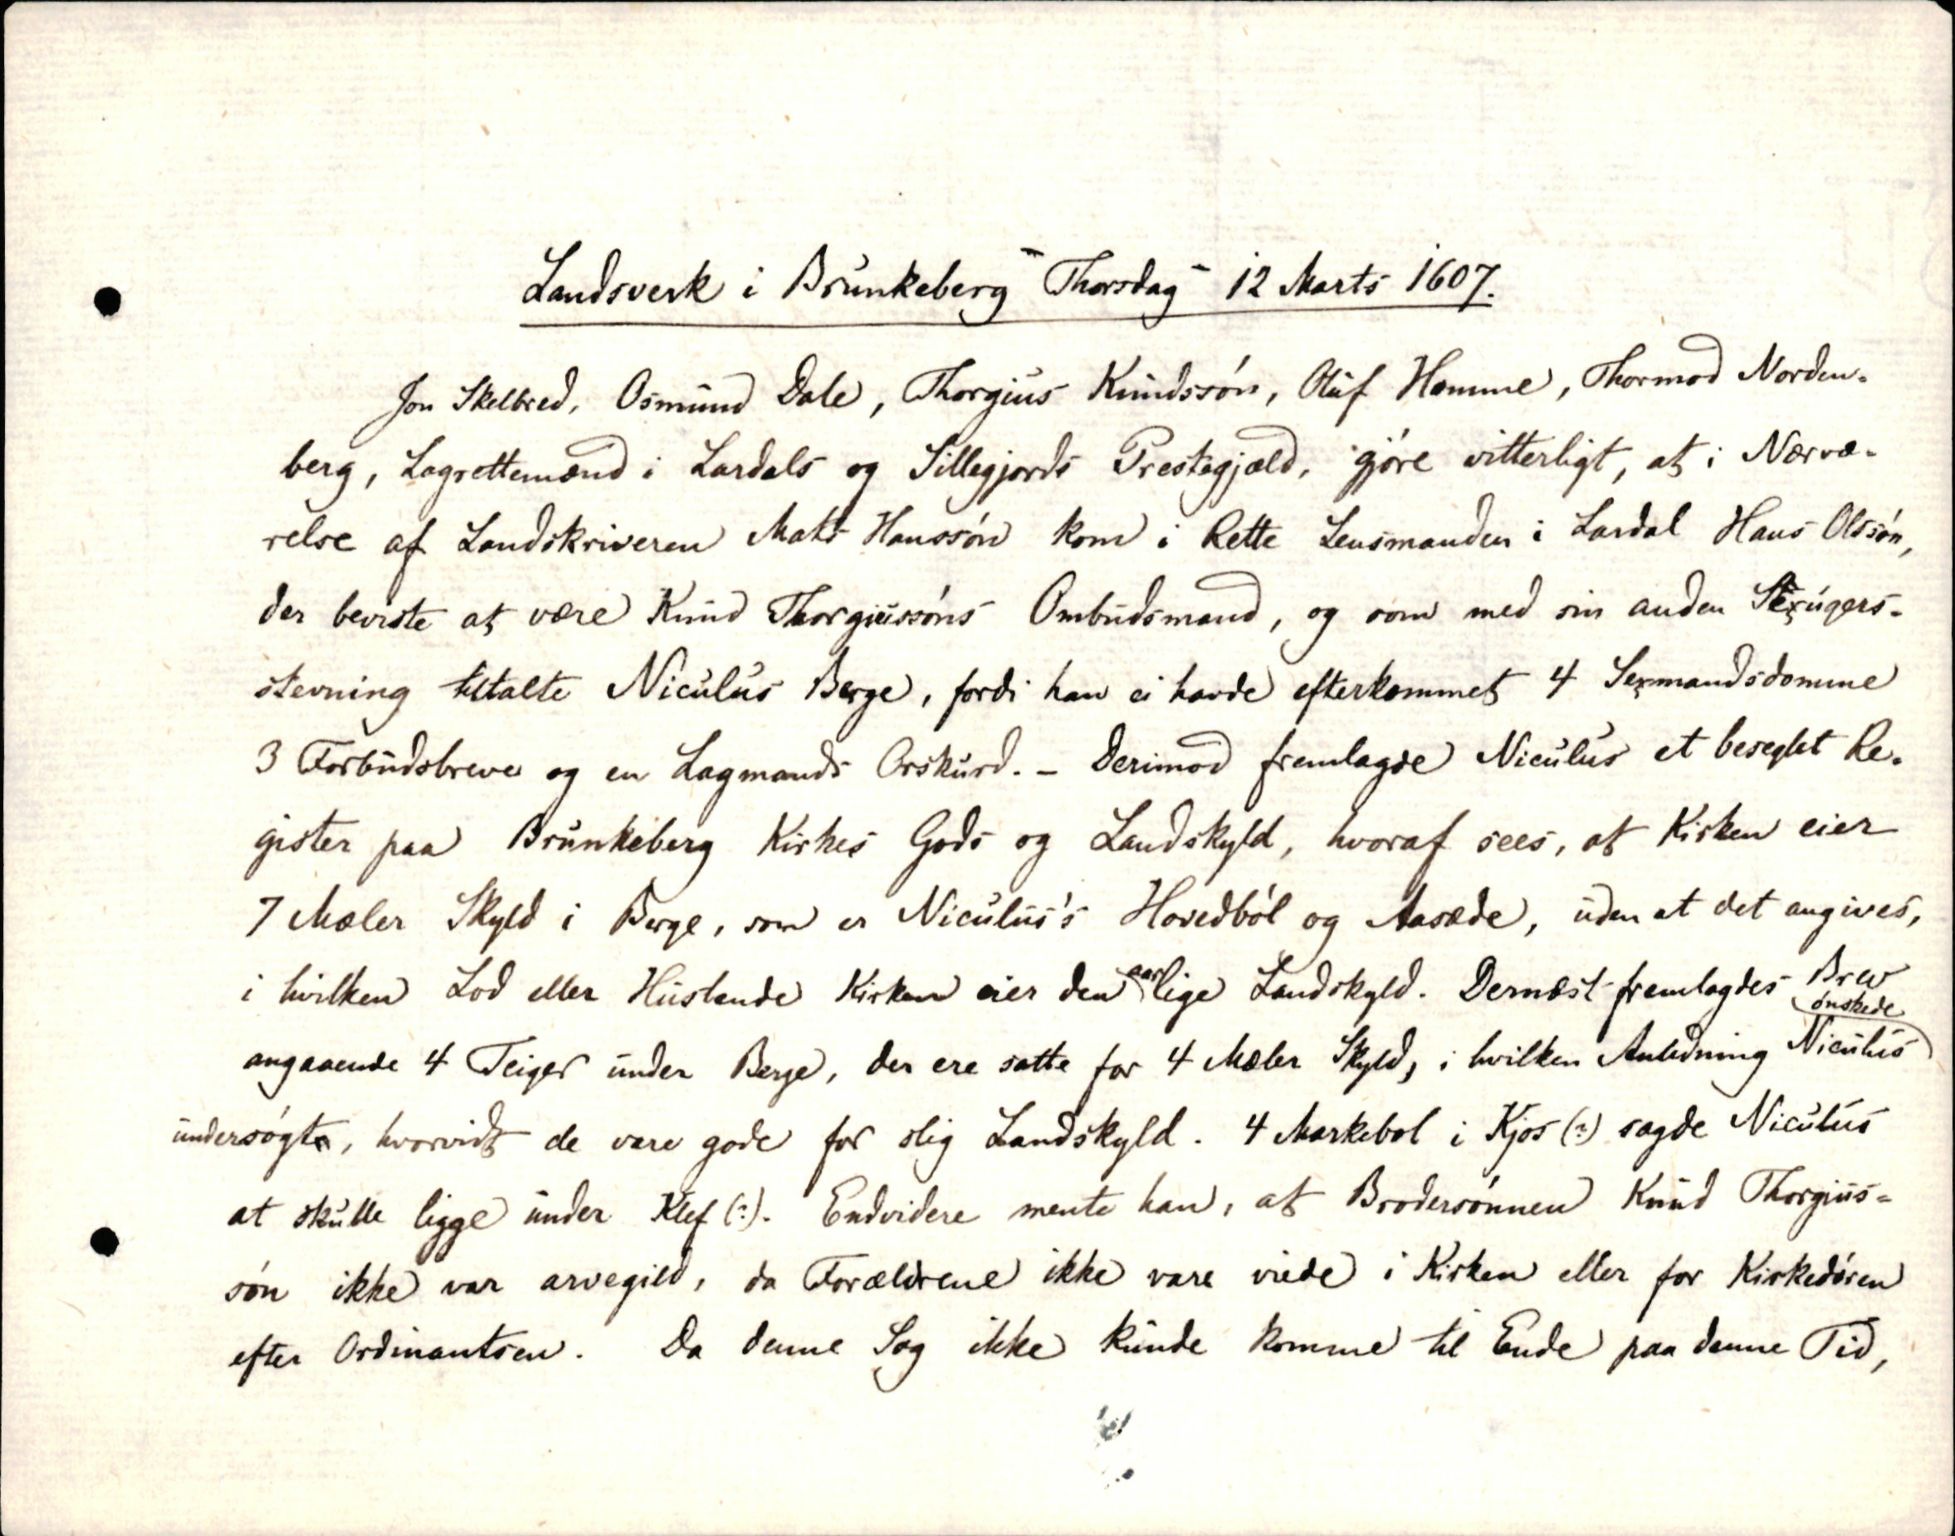 Landsverk i Brunkeberg Thorsdag 12 Marts 1607.
Jon Skelbred, Osmund Dale, Thorgius Knudssón, Oluf Homme, Thormod Norden-
berg, Lagrettemænd i Lardals og Sillegjords Prestegjæld, gjóre vitterligt, at i Nærvæ-
relse af Landskriveren Mats Hanssón kom i Rette Lensmanden i Lardal Hans Olssón,
der beviste at være Knud Thorgiussóns Ombudsmand, og som med sin anden Sexugers-
stevning tiltalte Niculus Berge, fordi han ei havde efterkommet 4 Sexmandsdomme
3 Forbudsbreve og en Lagmands Orskurd. - Derimod fremlagde Niculus et beseglet Re-
gister paa Brunkeberg Kirkes Gods og Landskyld, hvoraf sees, at Kirken eier
7 Mæler Skyld i Berge, som er Niculus's Hovedból og Aasæde, uden at det angives,
i hvilken Lod eller Huslende Kirken eier den aarlige Landskyld. Dernæst fremlagdes Brev
angaaende 4 Teiger under Berge, der ere satte for 4 Mæler Skyld, i hvilken Anledning Niculus ónskede
undersógt, hvorvidt de vare gode for slig Landskyld. 4 Markebol i Kjos (?) sagde Niculus
at skulle ligge under Klef (?). Endvidere mente han, at Brodersónnen Knud Thorgius-
són ikke var arvegild, da Forældrene ikke vare viede i Kirken eller for Kirkedóren
efter Ordinantsen. Da denne Sag ikke kunde komme til Ende paa denne Tid,